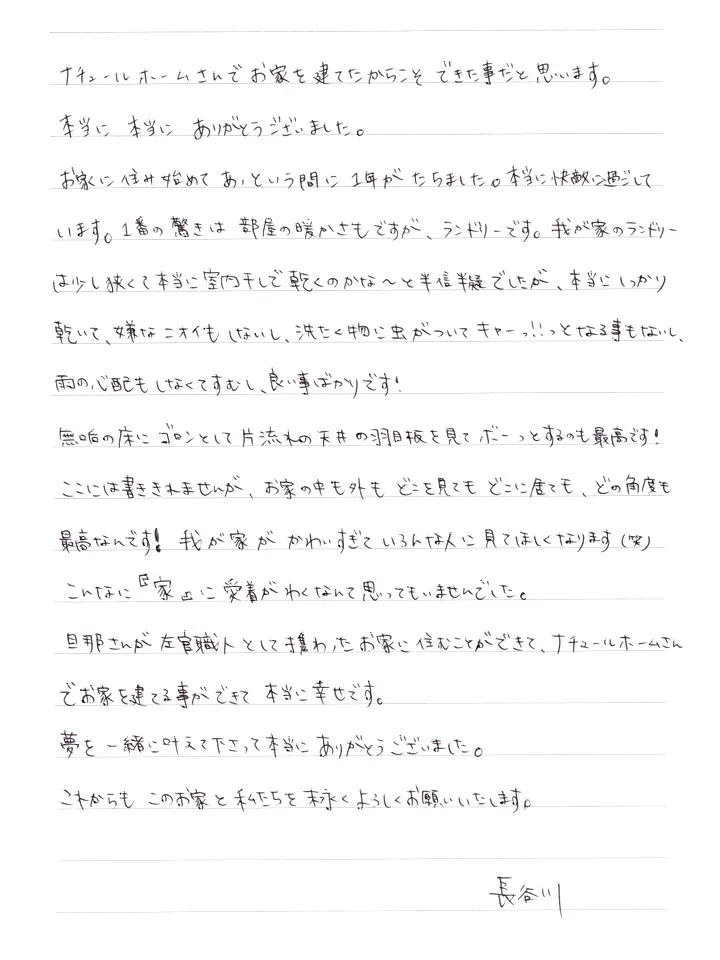 ナチュールホームさんで お家を建てたからこそ できた事だと思います。
本当に 本当に ありがとうございました。
お家に住み始めて あっという間に 1年が たちました。本当に快敵に過ごして
います。1番の驚きは 部屋の暖かさもですが、ランドリーです。我が家のランドリー
は少し狭くて本当に室内干しで乾くのかな〜と半信半疑でしたが、本当にしっかり
乾いて、嫌なニオイもしないし、洗たく物に虫がついてキャーっ!!っとなる事もないし、
雨の心配もしなくてすむし、良い事ばかりです!
無垢の床にゴロンとして片流れの天井の羽目板を見てボーっとするのも最高です!
ここには書ききれませんが、お家の中も外も どこを見ても どこに居ても、どの角度も
最高なんです! 我が家が かわいすぎて いろんな人に見てほしくなります(笑)
こんなに『家』に愛着が わくなんて思ってもいませんでした。
旦那さんが左官職人として携わったお家に住むことができて、ナチュールホームさん
でお家を建てる事ができて 本当に幸せです。
夢を一緒に叶えて下さって本当に ありがとうございました。
これからも このお家と私たちを末永くよろしくお願いいたします。
長谷川